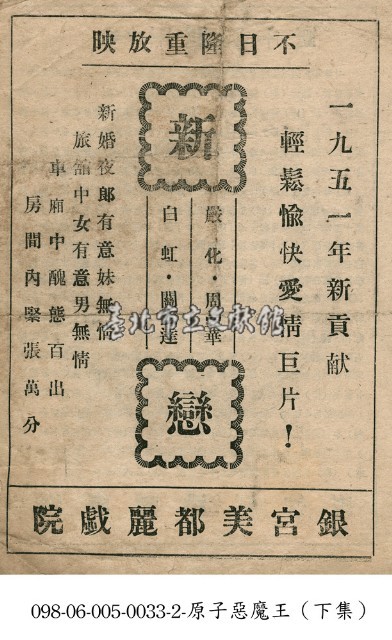 不日隆重放映
一九五一年新貢献
輕鬆愉快愛情巨片！
新戀
嚴化・周曼華
白虹・關達
新婚夜郎有意妹無情
旅舘中女有意男無情
車廂中醜態百出
房間內緊張萬分
銀宮美都麗戲院
臺北市立文獻館
098-06-005-0033-2-原子惡魔王（下集）